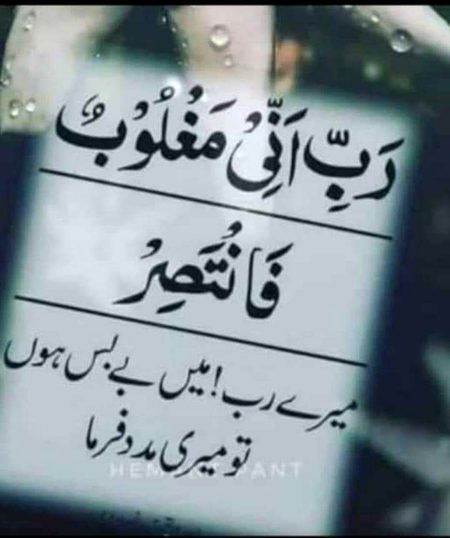 رَبِّ اَنِّىْ مَغْلُوْبٌ
فَانْتَصِرْ
میرے رب! میں بے بس ہوں
تو میری مدد فرما
HEMANT PANT